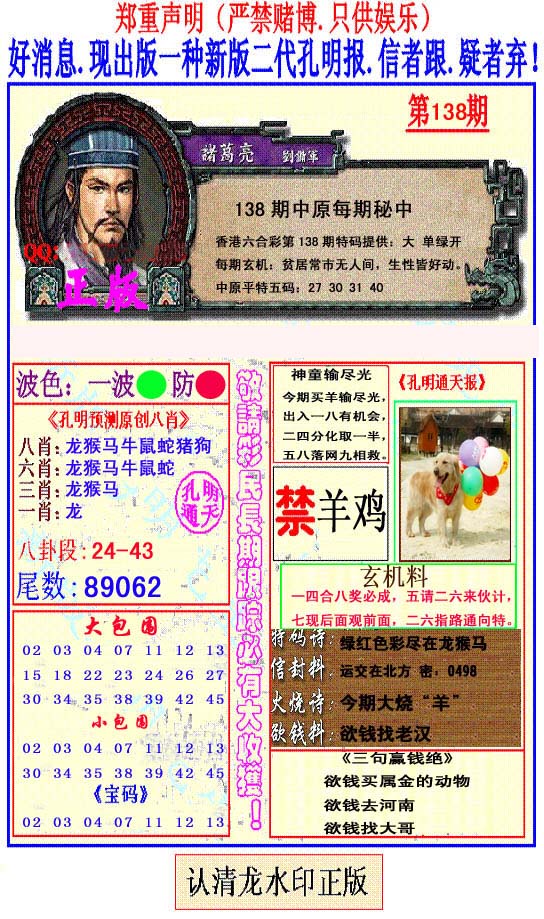 郑重声明（严禁赌博.只供娱乐）
好消息.现出版一种新版二代孔明报.信者跟.疑者弃！
第138期
諸葛亮 劉備軍
138期中原每期秘中
香港六合彩第138期特码提供：大 单绿开
每期玄机：贫居常市无人间，生性皆好动。
中原平特五码：27 30 31 40
QQ：
正版
波色：一波 防
《孔明预测原创八肖》
八肖：龙猴马牛鼠蛇猪狗
六肖：龙猴马牛鼠蛇
三肖：龙猴马
一肖：龙
孔明
通天
八卦段：24-43
尾数：89062
大包围
02 03 04 07 11 12 13
15 18 22 23 24 26 27
30 34 35 38 39 42 45
小包围
02 03 04 07 11 12 13
30 34 35 38 39 42 45
《宝码》
02 03 04 07 11 12 13
敬請彩民長期跟踪必有大收獲！
神童输尽光
今期买羊输尽光，
出入一八有机会，
二四分化取一半，
五八落网九相救。
《孔明通天报》
禁羊鸡
玄机料
一四合八奖必成，五请二六来伙计，
七现后面观前面，二六指路通向特。
特码诗：绿红色彩尽在龙猴马
信封料：运交在北方 密：0498
火烧诗：今期大烧“羊”
欲钱料：欲钱找老汉
《三句赢钱绝》
欲钱买属金的动物
欲钱去河南
欲钱找大哥
认清龙水印正版